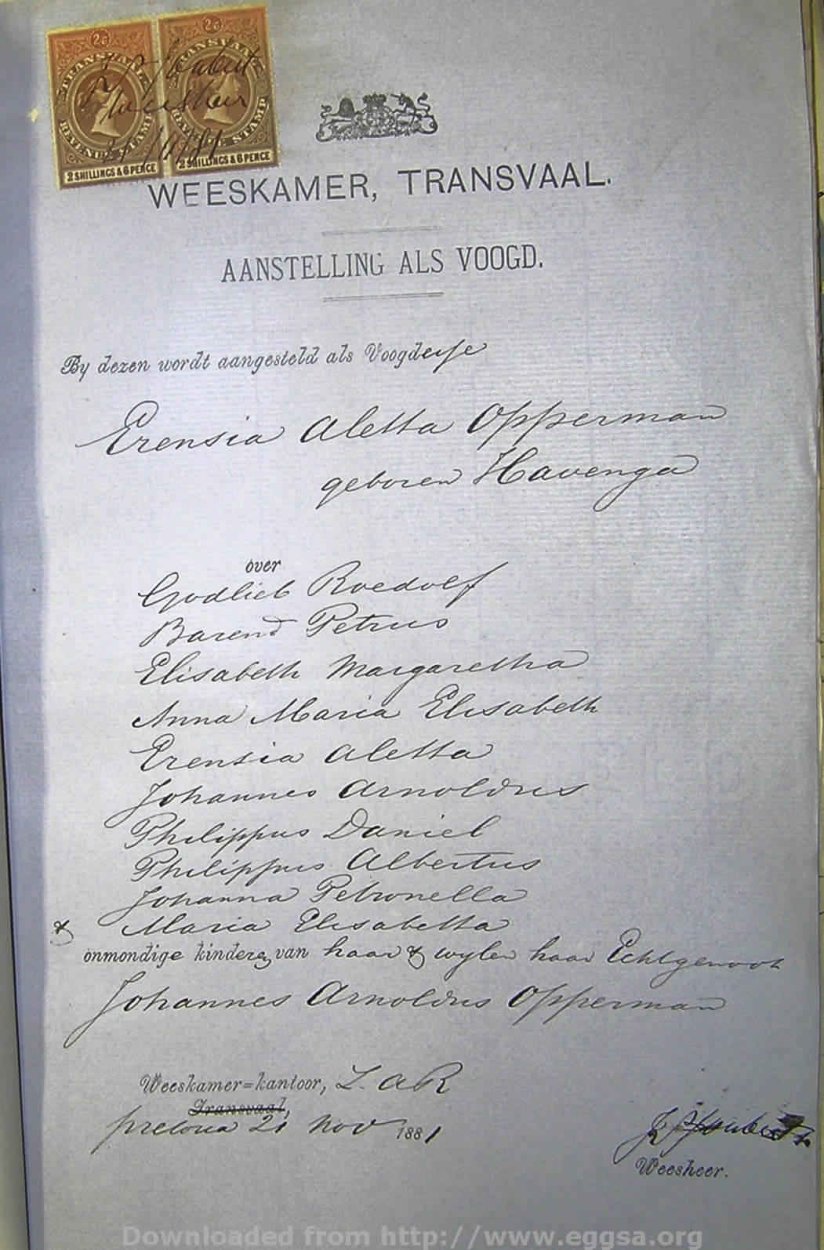 2/6 2/6
TRANSVAAL TRANSVAAL
REVENUE STAMP REVENUE STAMP
2 SHILLINGS & 6 PENCE 2 SHILLINGS & 6 PENCE
Joubert
Weesheer
WEESKAMER, TRANSVAAL.
AANSTELLING ALS VOOGD.
By dezen wordt aangesteld als Voogdesse
Erensia Aletta Opperman
geboren Havenga
over
Godlieb Roedolf
Barend Petrus
Elisabeth Margaretha
Anna Maria Elisabeth
Erensia Aletta
Johannes Arnoldus
Philippus Daniel
Philippus Albertus
Johanna Petronella
& Maria Elisabetta
onmondige kinderen van haar & wylen haar Echtgenoot
Johannes Arnoldus Opperman
Weeskamer=kantoor, Z. A R
Transvaal,
Pretoria 21 Nov 1881
Joubert
Weesheer.
Downloaded from http://www.eggsa.org